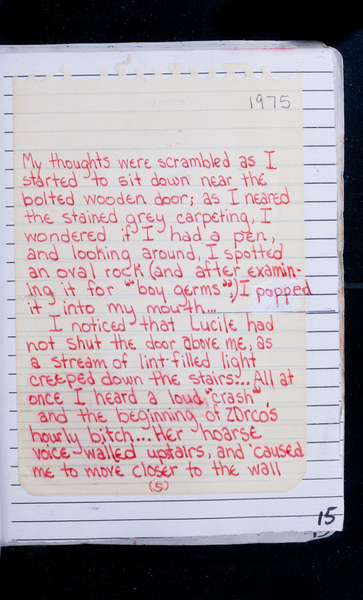 1975
My thoughts were scrambled as I
started to sit down near the
bolted wooden door; as I neared
the stained grey carpeting, I
wondered if I had a pen,
and looking around, I spotted
an oval rock (and after examin-
ing it for "boy germs",) I popped
it into my mouth...
I noticed that Lucile had
not shut the door above me, as
a stream of lint-filled light
creeped down the stairs... All at
once I heard a loud "crash",
and the beginning of Zorco's
hourly bitch... Her hoarse
voice walled upstairs, and caused
me to move closer to the wall
(5)
15